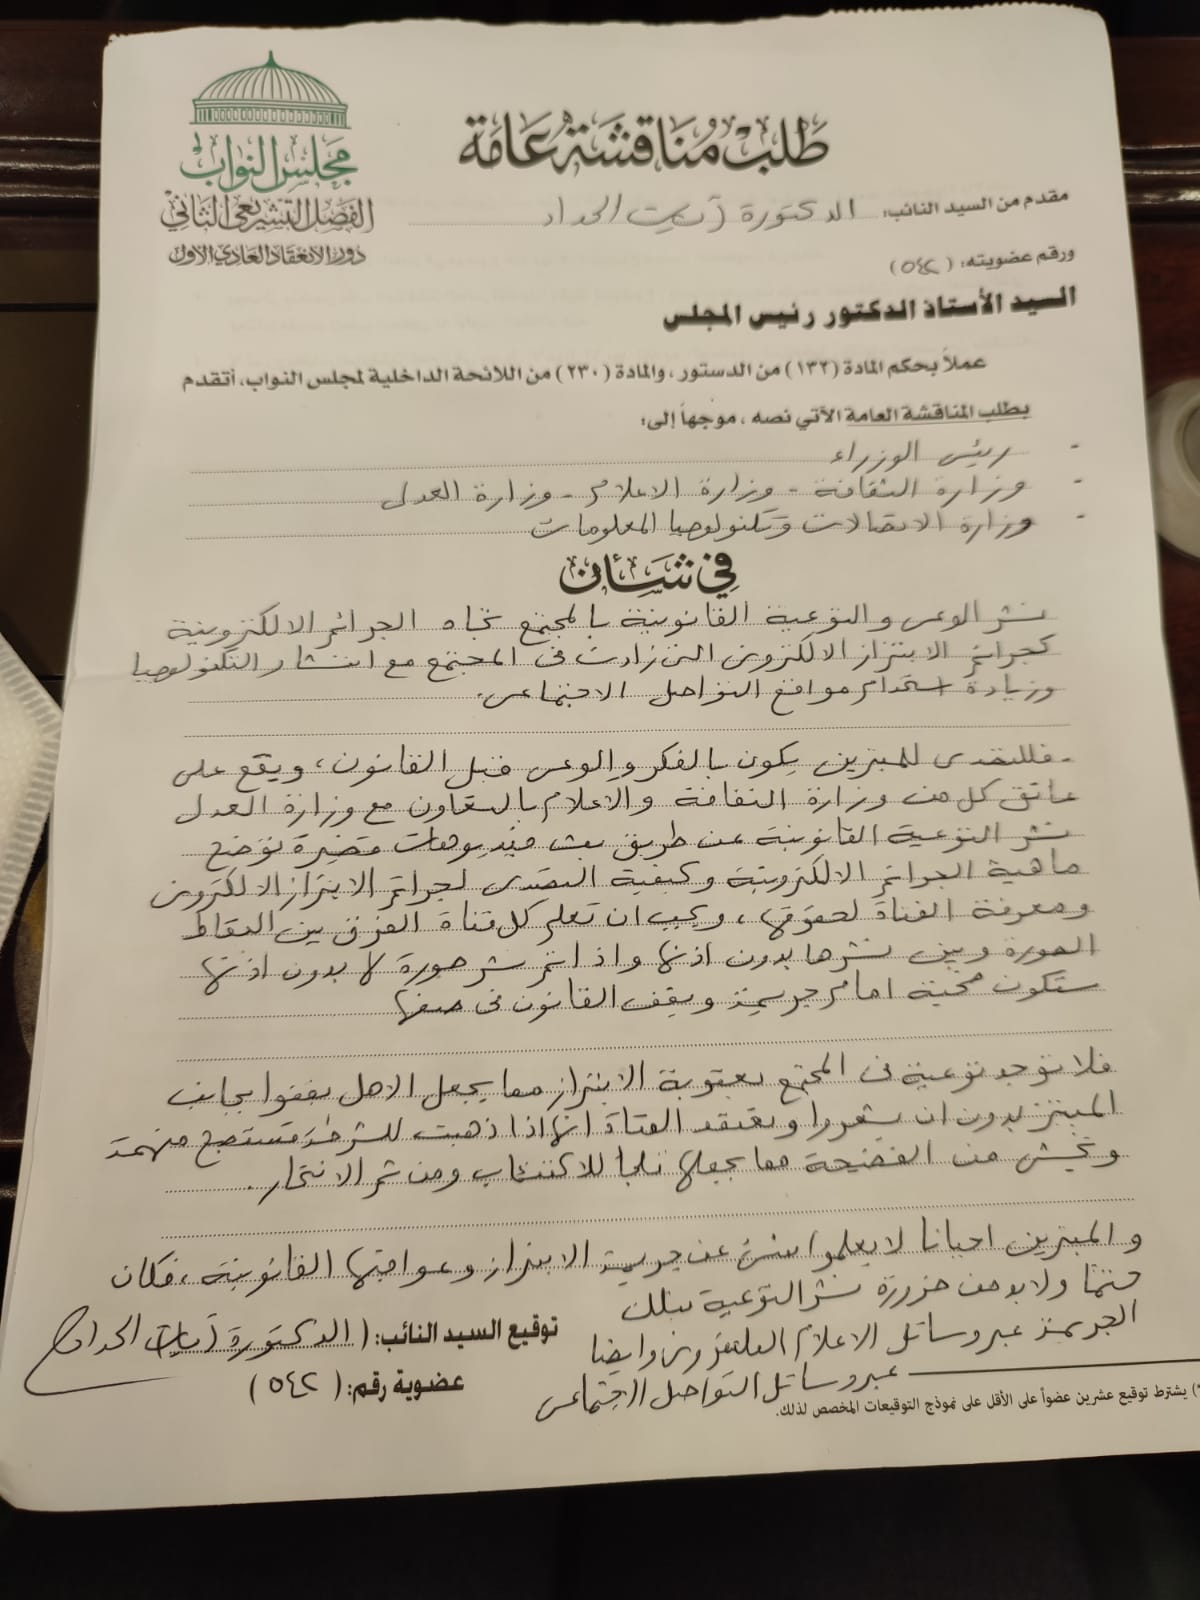 مجلس النواب
الفصل التشريعي الثاني
دور الانعقاد العادي الأول
طلب مناقشة عامة
مقدم من السيد النائب: الدكتورة آيات الحداد
ورقم عضويته: (٥٤٢)
السيد الأستاذ الدكتور رئيس المجلس
عملاً بحكم المادة (١٣٢) من الدستور، والمادة (٢٣٠) من اللائحة الداخلية لمجلس النواب، أتقدم
بطلب المناقشة العامة الآتي نصه، موجهاً إلى:
- رئيس الوزراء
- وزارة الثقافة - وزارة الاعلام - وزارة العدل
- وزارة الاتصالات وتكنولوجيا المعلومات
في شأن
نشر الوعى والتوعية القانونية بالمجتمع تجاه الجرائم الالكترونية
كجرائم الابتزاز الالكترونى التى زادت فى المجتمع مع انتشار التكنولوجيا
وزيادة استخدام مواقع التواصل الاجتماعى.
- فللتصدى للمبتزين يكون بالفكر والوعى قبل القانون، ويقع على
عاتق كل من وزارة الثقافة والاعلام بالتعاون مع وزارة العدل
نشر التوعية القانونية عن طريق بث فيديوهات قصيرة توضح
ماهية الجرائم الالكترونية وكيفية التصدى لجرائم الابتزاز الالكترونى
ومعرفة الفتاة لحقوقها، ويجب ان تعلم كل فتاة الفرق بين التقاط
الصورة وبين نشرها بدون اذنها واذا تم نشر صورة لا بدون اذنها
ستكون ضحية امام جريمة ويقف القانون فى صفها
فلا توجد توعية فى المجتمع بعقوبة الابتزاز مما يجعل الاهل يقفوا بجانب
المبتز بدون ان يشعروا وتعتقد الفتاة انها اذا ذهبت للشرطة ستصبح متهمة
وتخشى من الفضيحة مما يجعلها تلجأ للاكتئاب ومن ثم الانتحار.
والمبتزين احيانا لا يعلموا شئ عن جريمة الابتزاز وعواقبها القانونية، فكان
حتما ولابد من ضرورة نشر التوعية بتلك
الجريمة عبر وسائل الاعلام التلفزيونى وايضا
عبر وسائل التواصل الاجتماعى
توقيع السيد النائب: (الدكتورة آيات الحداد)
عضوية رقم: (٥٤٢)
(*) يشترط توقيع عشرين عضواً على الأقل على نموذج التوقيعات المخصص لذلك.